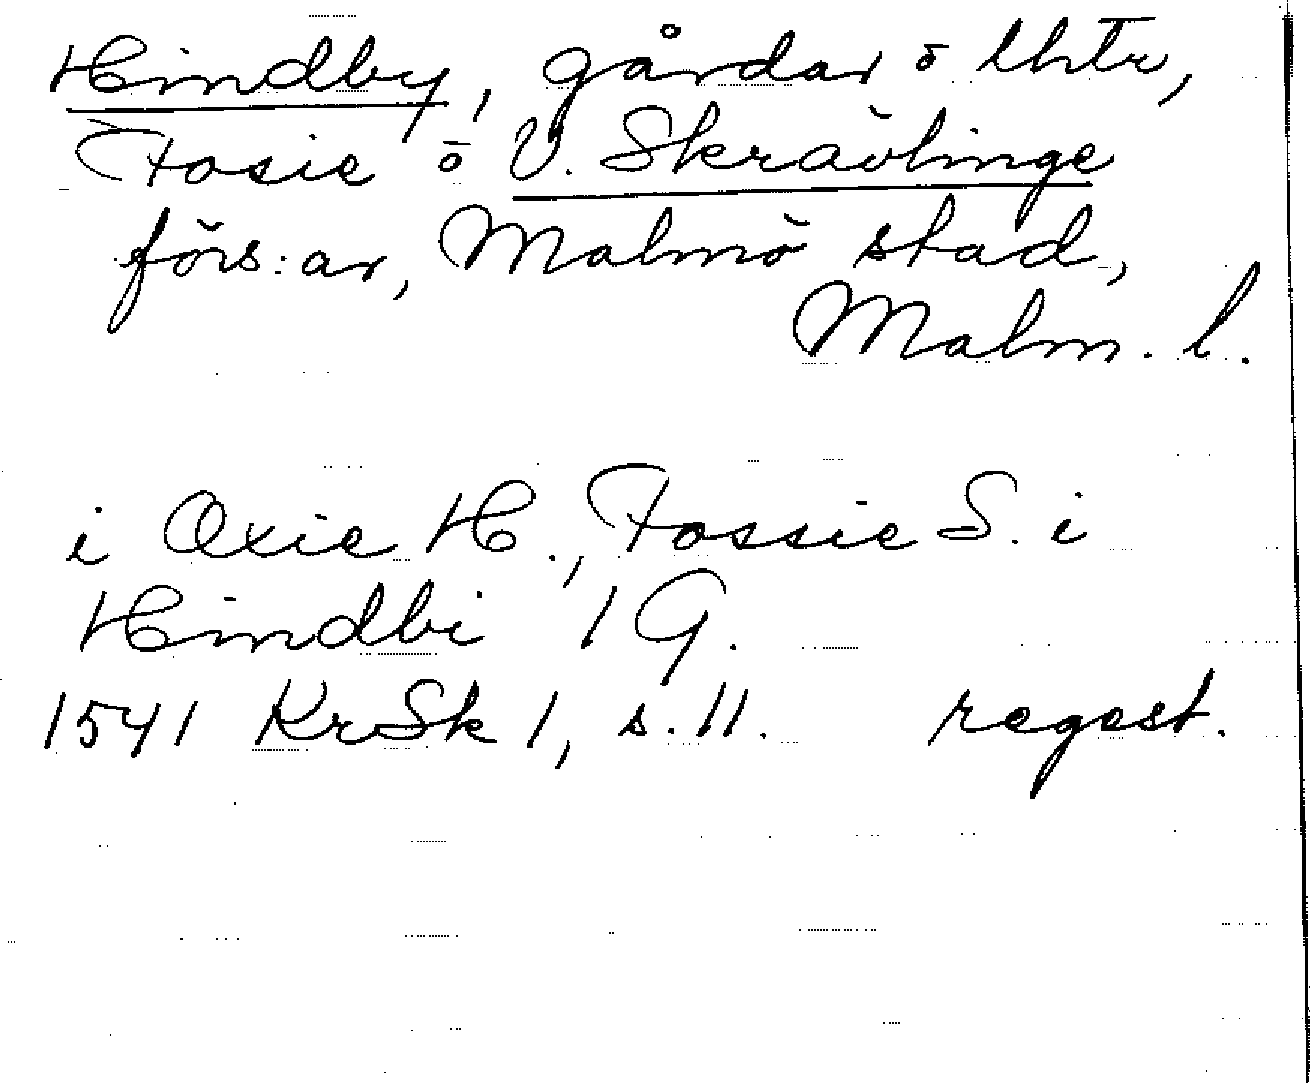 Hindby, gårdar o lhtr,
Fosie o V. Skrävlinge
förs:ar, Malmö stad,
Malm. l.
i Oxie H., Fossie S. i
Hindbi 1 G.
1541 KrSk 1, s. 11. regest.